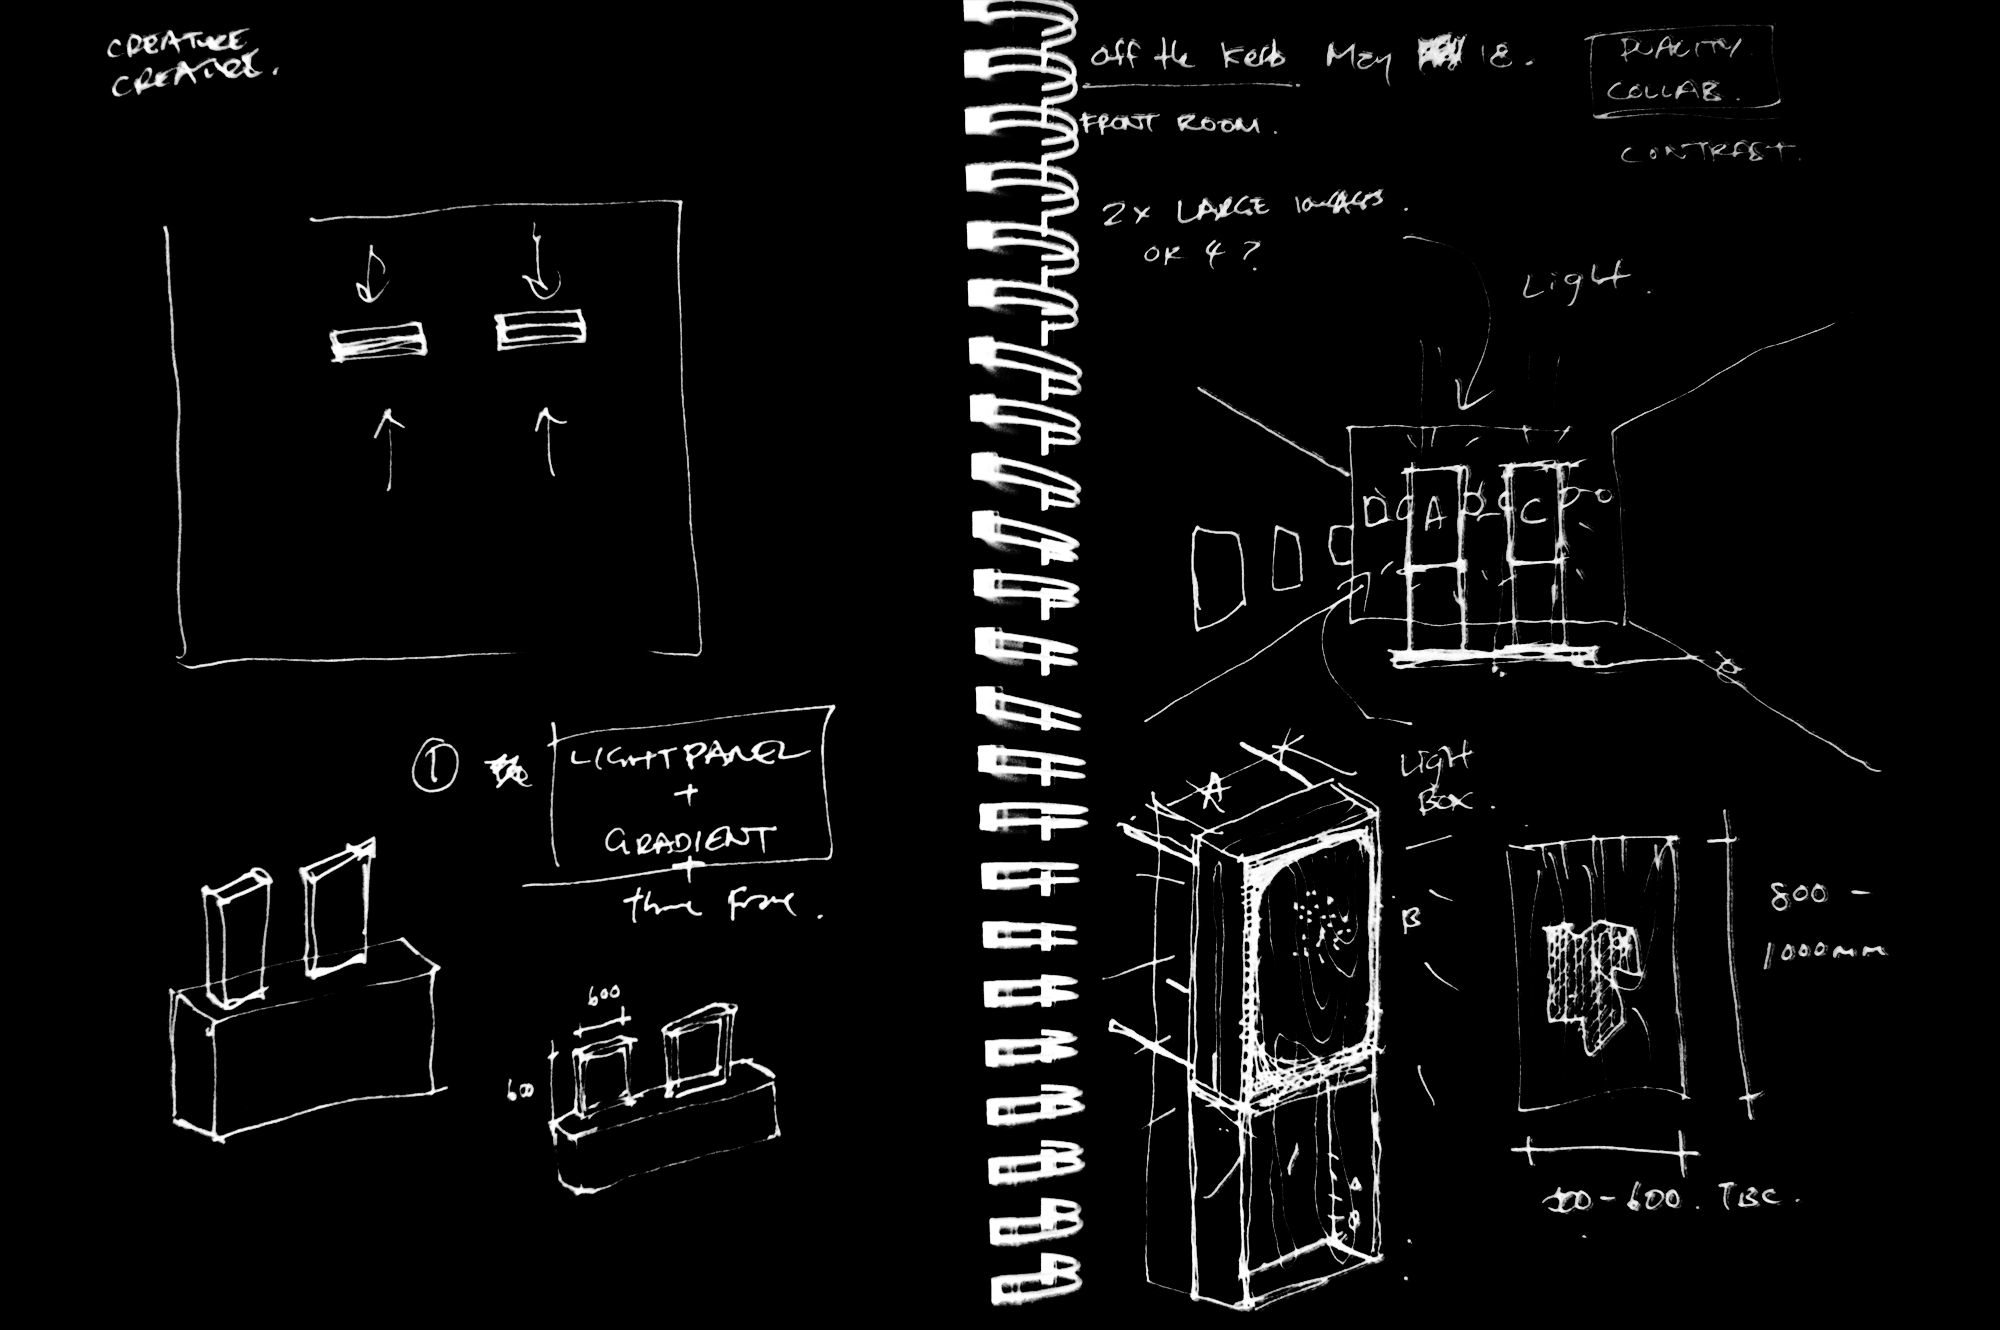 CREATURE
CREATURE.
① LIGHT PANEL
+
GRADIENT
+
600
600
Off the Kerb May 18.
FRONT ROOM.
DUALITY
COLLAB.
CONTRAST.
2x LARGE IMAGES.
OR 4?
Light.
A C
Light
Box.
A
B
800 -
1000mm
- 600. TBC.